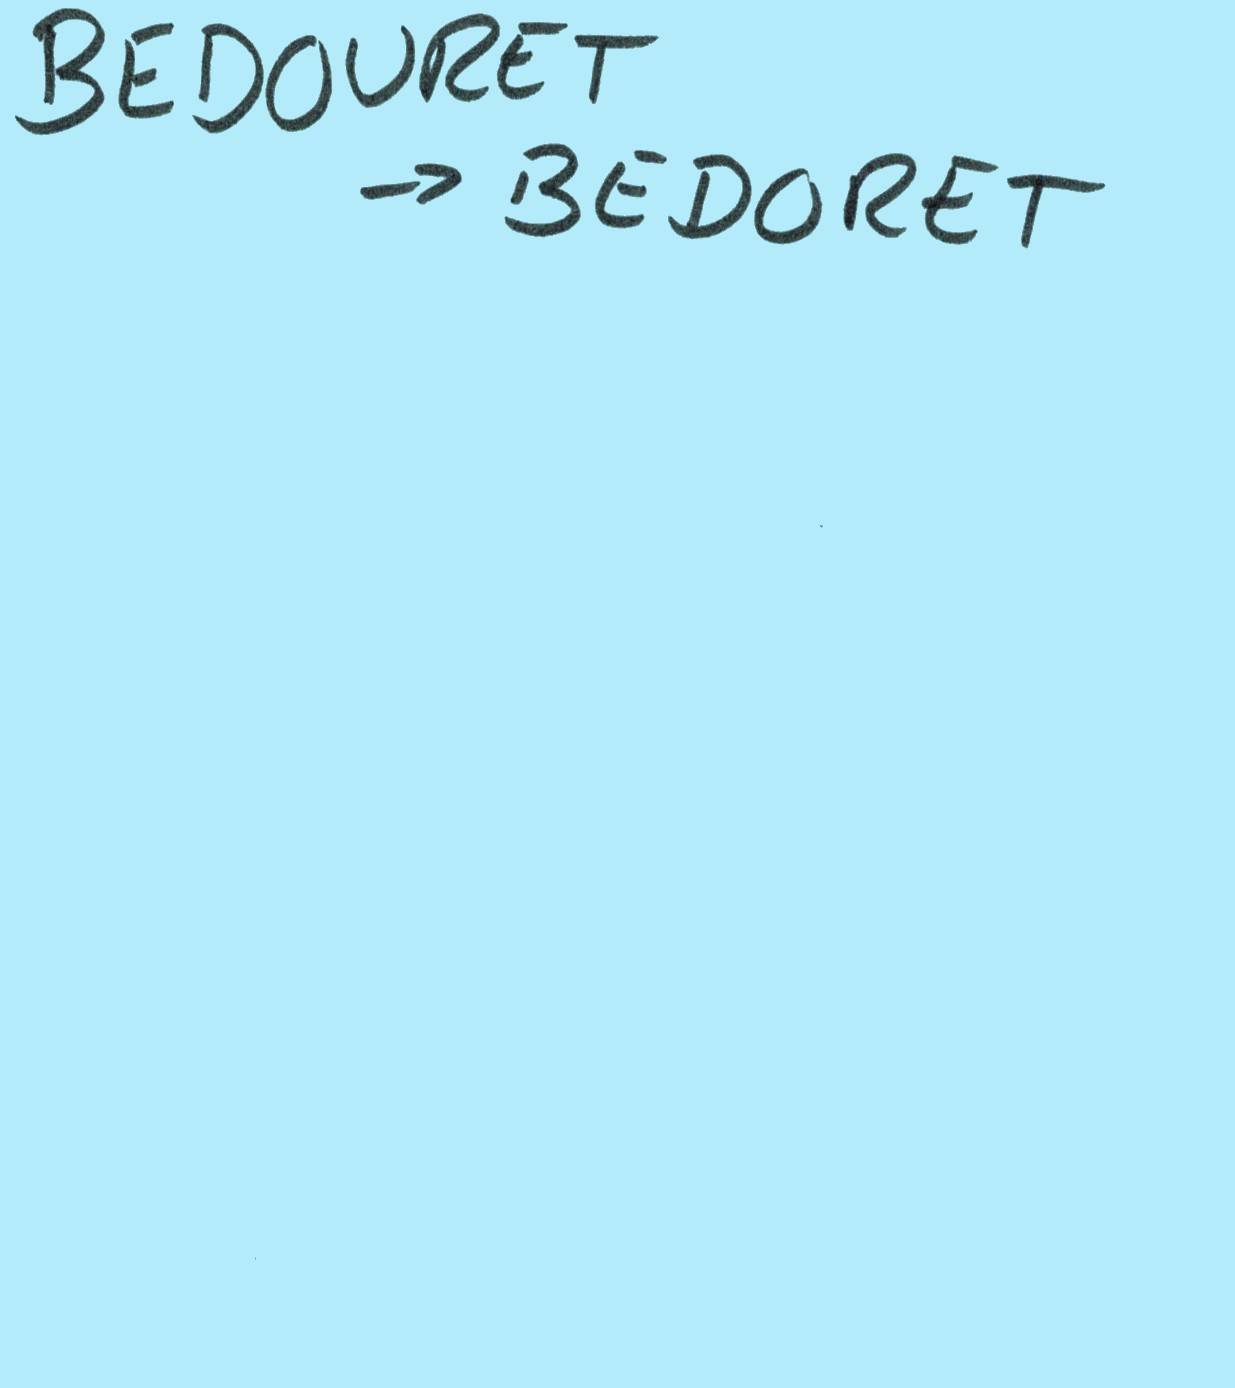 BEDOURET
→ BEDORET